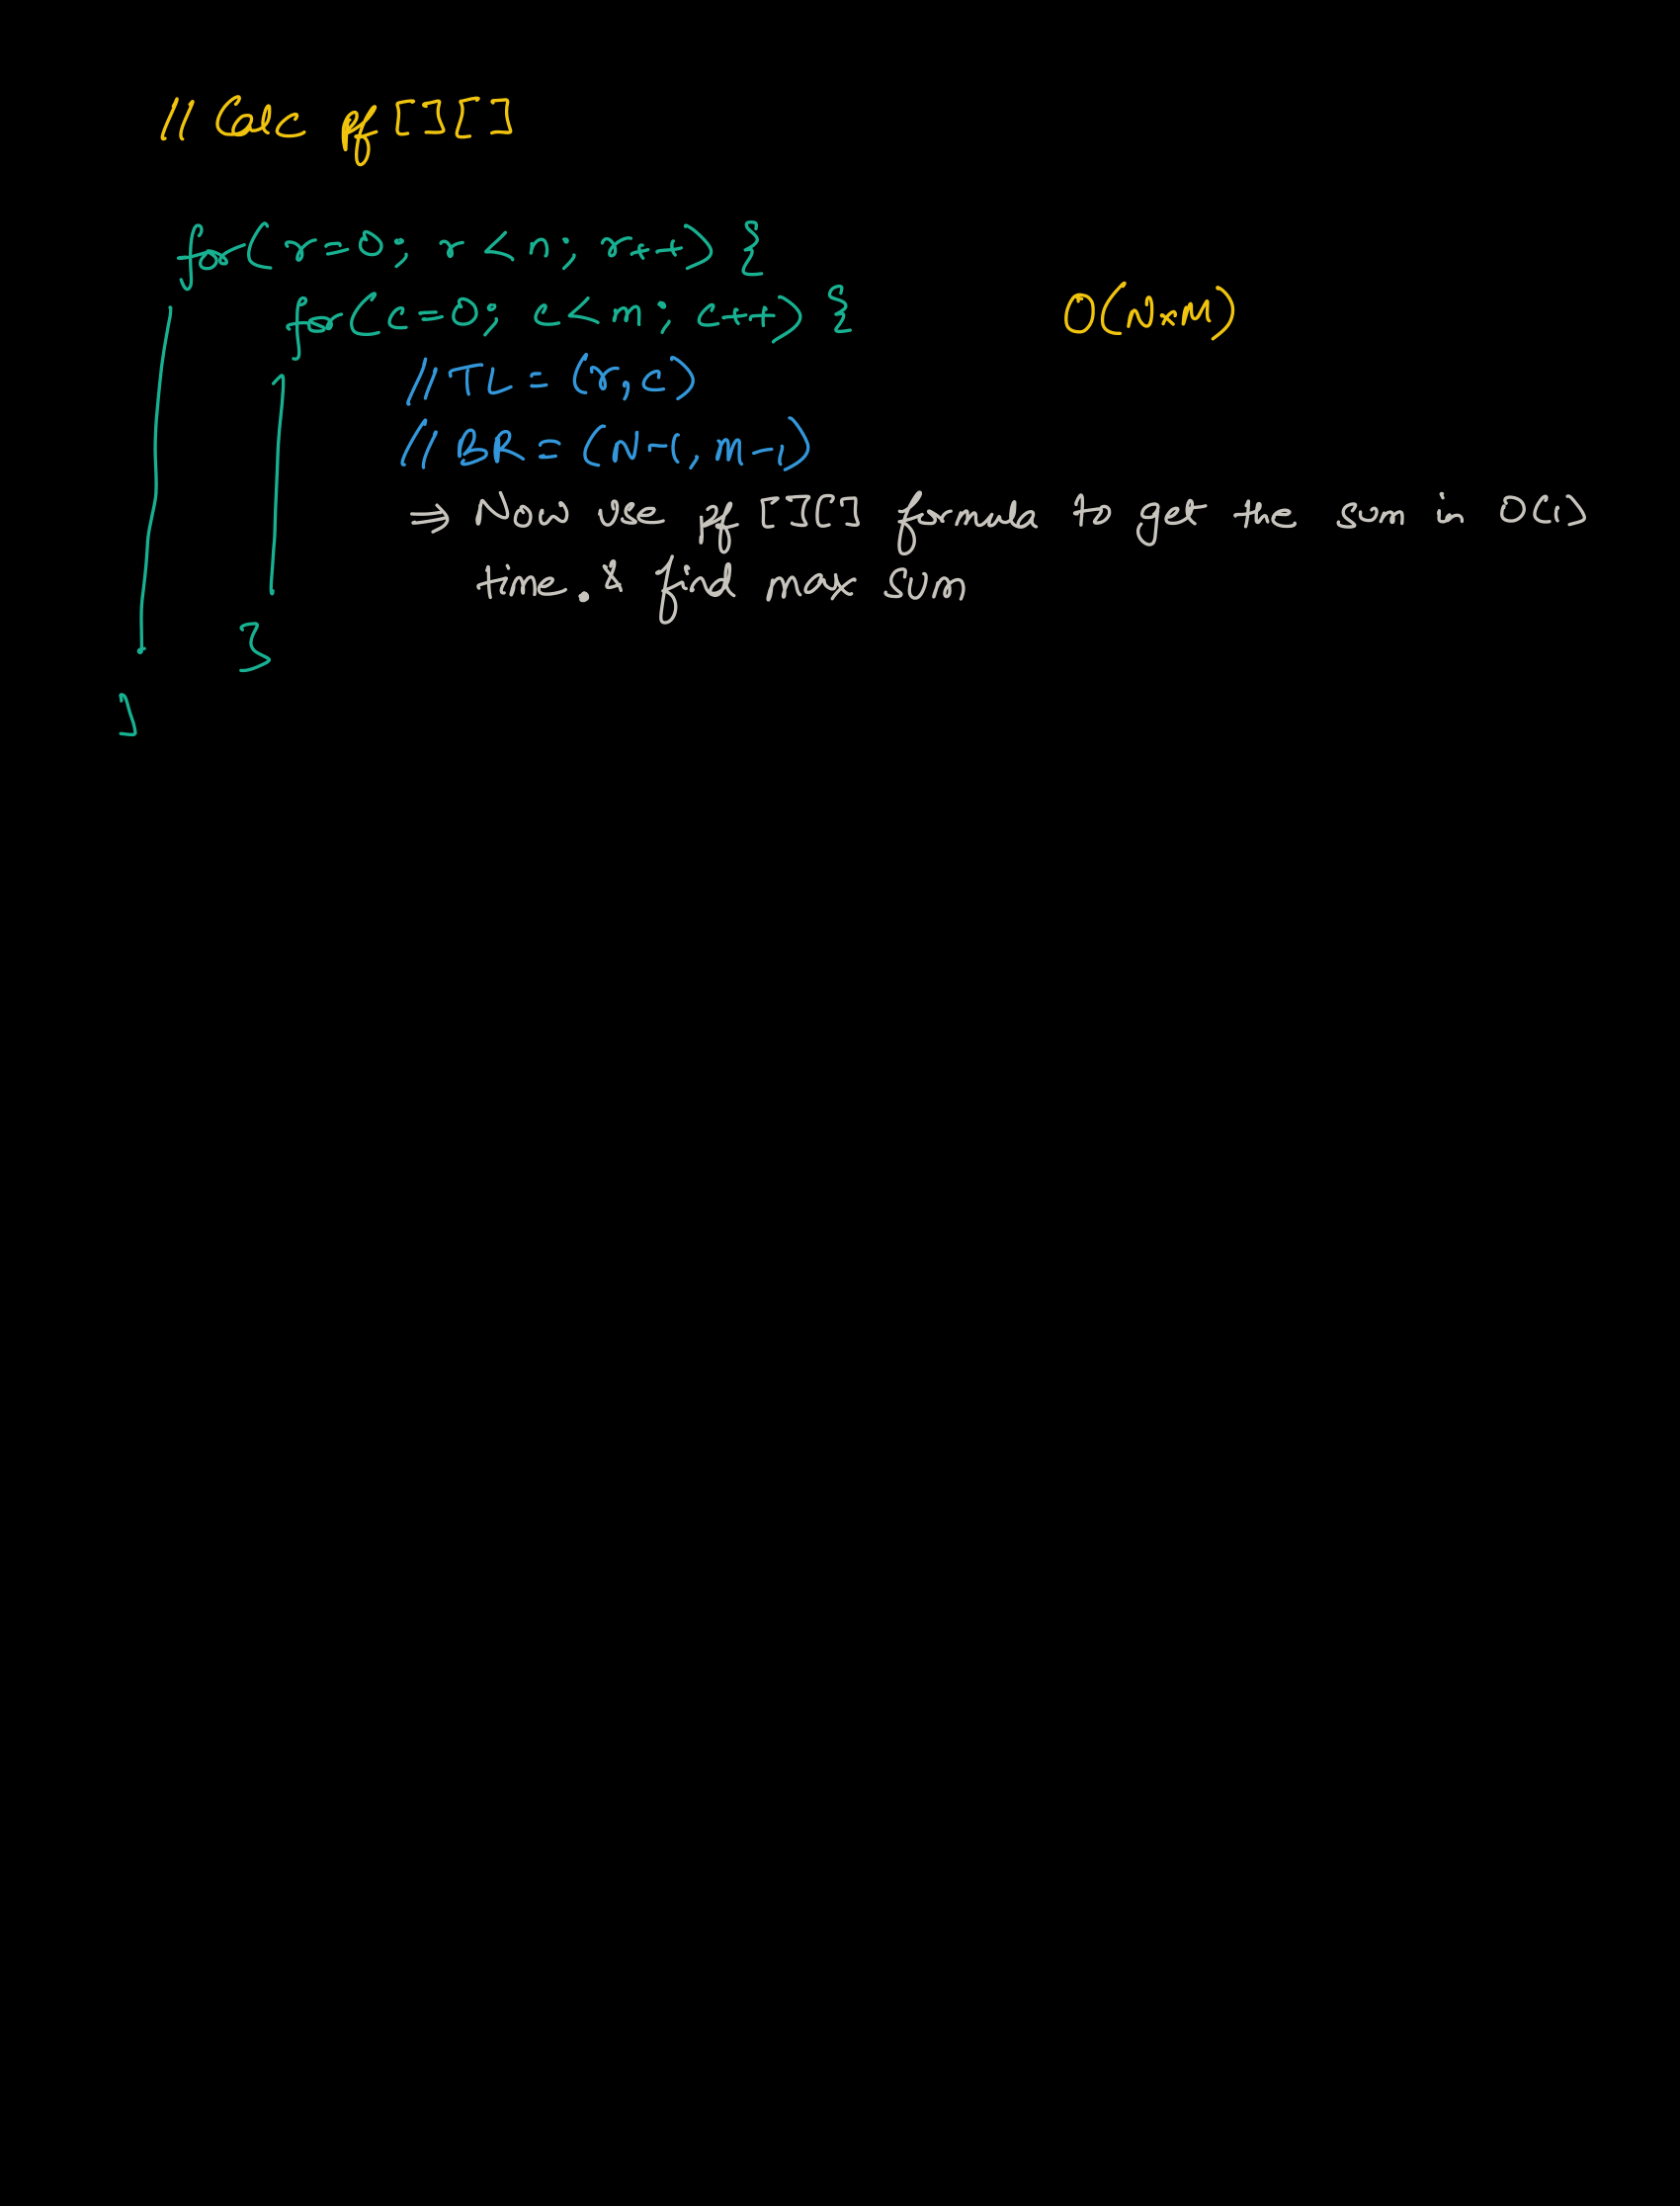 // Calc pf[][]
for(r=0; r<n; r++) {
for(c=0; c<m; c++) {
O(N×M)
// TL = (r,c)
// BR = (N-1, M-1)
⇒ Now use pf[][] formula to get the sum in O(1)
time. & find max sum
}
}